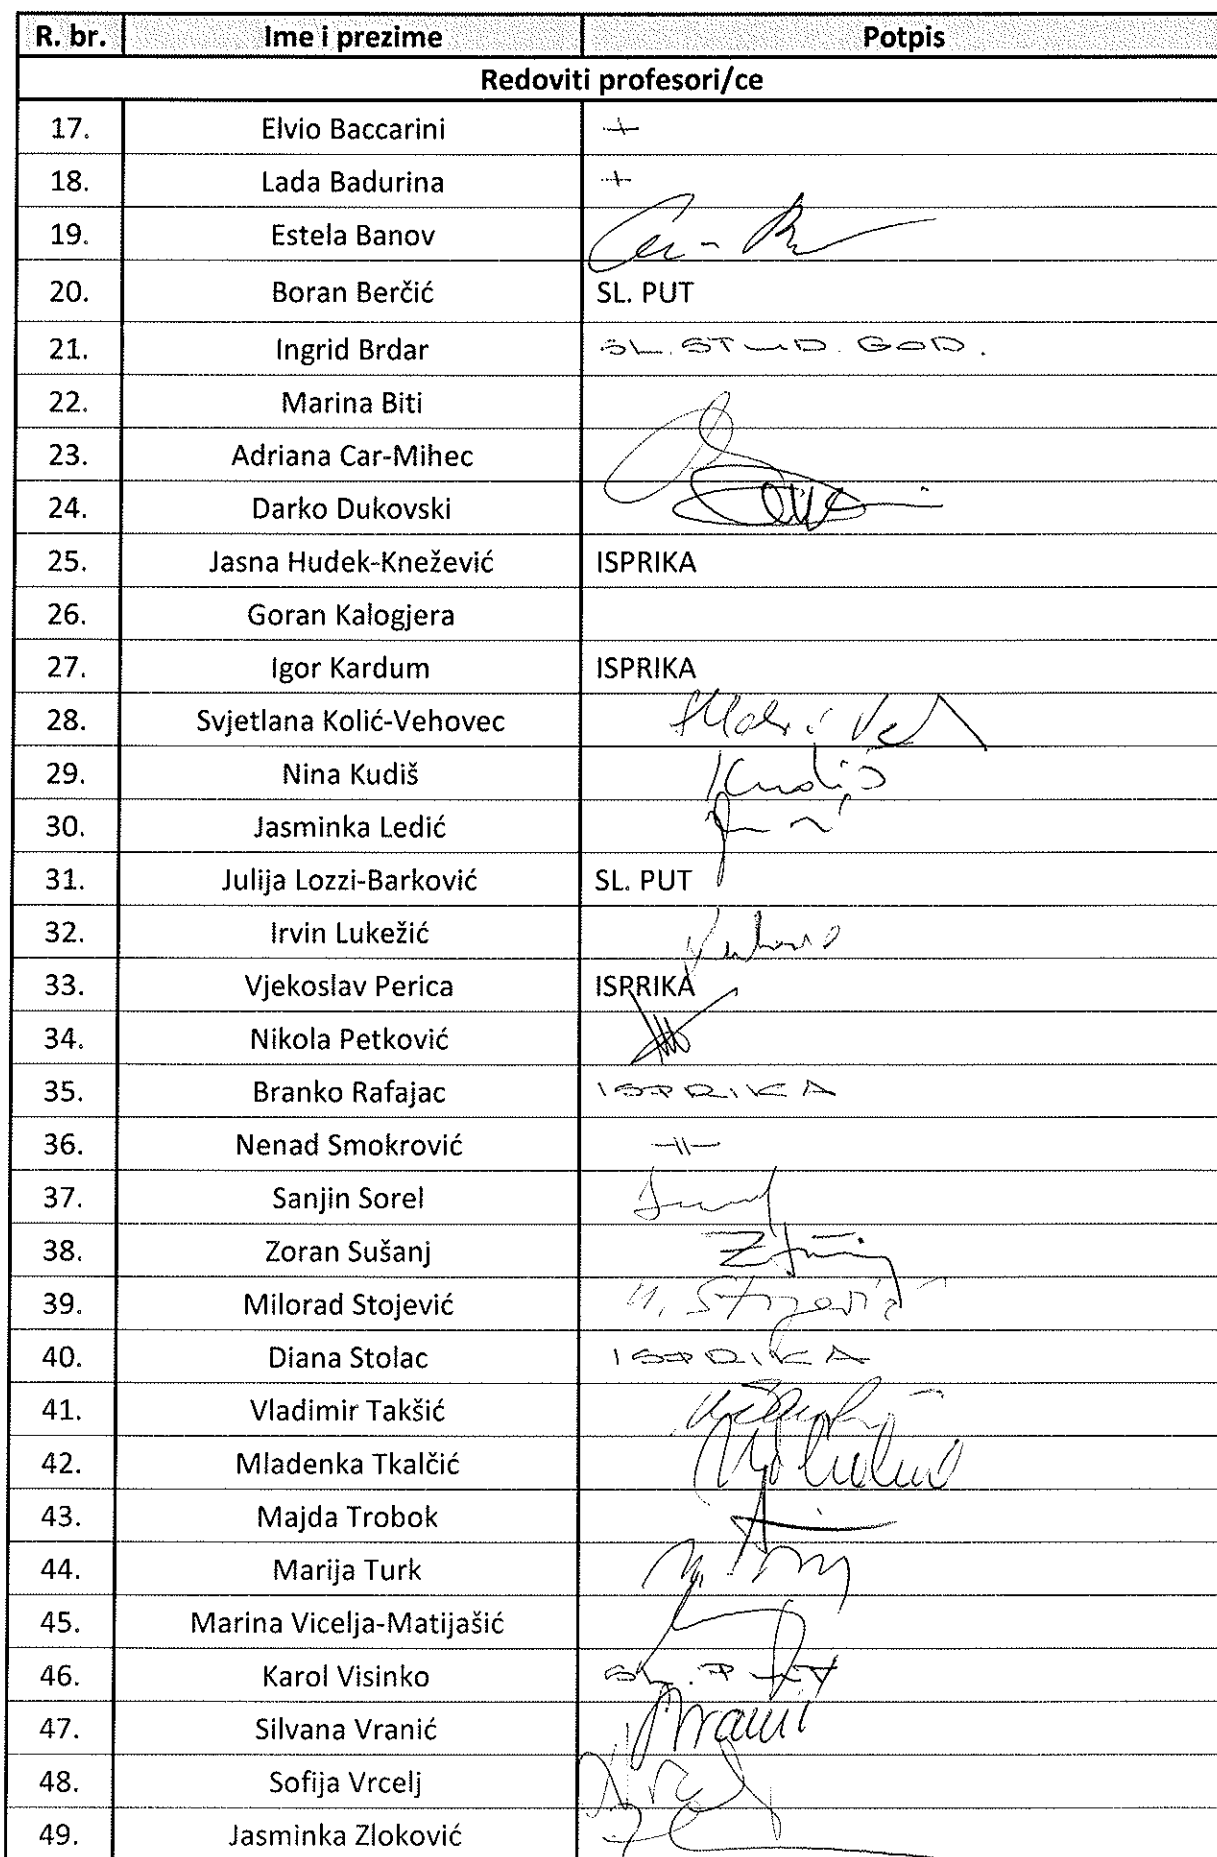 R. br. Ime i prezime Potpis
Redoviti profesori/ce
17. Elvio Baccarini +
18. Lada Badurina +
19. Estela Banov
20. Boran Berčić SL. PUT
21. Ingrid Brdar SL. STUD. GOD.
22. Marina Biti
23. Adriana Car-Mihec
24. Darko Dukovski
25. Jasna Hudek-Knežević ISPRIKA
26. Goran Kalogjera
27. Igor Kardum ISPRIKA
28. Svjetlana Kolić-Vehovec
29. Nina Kudiš Kudiš
30. Jasminka Ledić
31. Julija Lozzi-Barković SL. PUT
32. Irvin Lukežić
33. Vjekoslav Perica ISPRIKA
34. Nikola Petković
35. Branko Rafajac ISPRIKA
36. Nenad Smokrović -||-
37. Sanjin Sorel
38. Zoran Sušanj
39. Milorad Stojević M. Stojević
40. Diana Stolac ISPRIKA
41. Vladimir Takšić
42. Mladenka Tkalčić
43. Majda Trobok
44. Marija Turk
45. Marina Vicelja-Matijašić
46. Karol Visinko SL. PUT
47. Silvana Vranić Vranić
48. Sofija Vrcelj
49. Jasminka Zloković